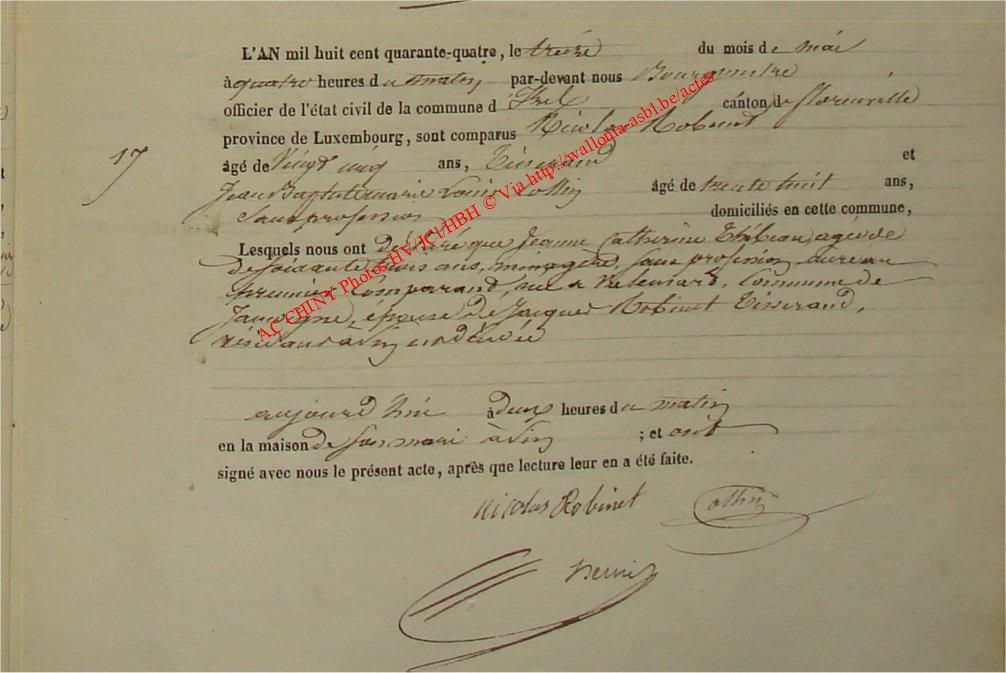 L'AN mil huit cent quarante-quatre, le treize du mois de mai
à quatre heures du matin par-devant nous Bourgmestre
officier de l'état civil de la commune d'Izel canton de florenville
province de Luxembourg, sont comparus Nicolas Robinet
17
âgé de Vingt cinq ans, Tisserand et
Jean Baptiste marie Louis Collin âgé de trente huit ans,
Sans profession domiciliés en cette commune,
Lesquels nous ont déclaré que Jeanne Catherine Thibeau, agée de
soixante trois ans, menagère sans profession,
premier Comparant, née à Valensart, Commune de
Jamoigne, epouse de Jacques Robinet Tisserand,
est décédée
aujourd'hui à deux heures du matin
en la maison de son mari ; et ont
signé avec nous le présent acte, après que lecture leur en a été faite.
Nicolas Robinet Collin
AC CHINY Photos HV/JCl/HBH © Via http://wallonia-asbl.be/actes